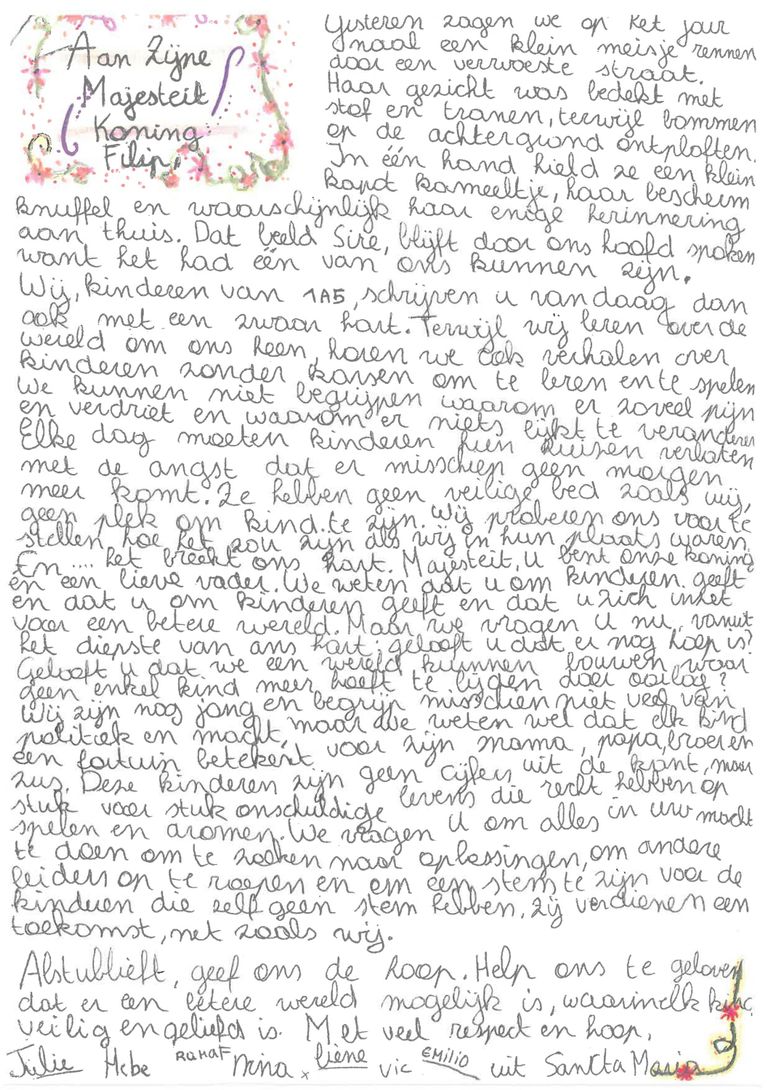 Aan Zijne
Majesteit
Koning
Filip,
Gisteren zagen we op het jour
naal een klein meisje rennen
door een verwoeste straat.
Haar gezicht was bedekt met
stof en tranen, terwijl bommen
op de achtergrond ontploften.
In één hand hield ze een klein
kapot kameeltje, haar bescherm
knuffel en waarschijnlijk haar enige herinnering
aan thuis. Dat beeld Sire, blijft door ons hoofd spoken
want het had één van ons kunnen zijn.
Wij, kinderen van 1A5, schrijven u vandaag dan
ook met een zwaar hart. Terwijl wij leren over de
wereld om ons heen, horen we ook verhalen over
kinderen zonder kansen om te leren en te spelen
We kunnen niet begrijpen waarom er zoveel pijn
en verdriet en waarom er niets lijkt te veranderen
Elke dag moeten kinderen hun huizen verlaten
met de angst dat er misschien geen morgen
meer komt. Ze hebben geen veilige bed zoals wij,
geen plek om kind te zijn. Wij proberen ons voor te
stellen hoe het zou zijn als wij in hun plaats waren.
En .... het breekt ons hart. Majesteit, u bent onze koning
en een lieve vader. We weten dat u om kinderen geeft
en dat u om kinderen geeft en dat u zich inzet
voor een betere wereld. Maar we vragen u nu, vanuit
het diepste van ons hart, gelooft u dat er nog hoop is?
Gelooft u dat we een wereld kunnen bouwen waar
geen enkel kind meer hoeft te lijden door oorlog?
Wij zijn nog jong en begrijp misschien niet veel van
politiek en macht, maar we weten wel dat elk kind
een fortuin betekent voor zijn mama, papa, broer en
zus. Deze kinderen zijn geen cijfers uit de krant, maar
stuk voor stuk onschuldige levens die recht hebben op
spelen en dromen. We vragen u om alles in uw macht
te doen om te zoeken naar oplossingen, om andere
leiders op te roepen en om een stem te zijn voor de
kinderen die zelf geen stem hebben, zij verdienen een
toekomst, net zoals wij.
Alstublieft, geef ons de hoop. Help ons te geloven
dat er een betere wereld mogelijk is, waarin elk kind
veilig en geliefd is. Met veel respect en hoop,
Julie Hebe Rahaf Nina Liene vic EMILIO uit Sancta Maria